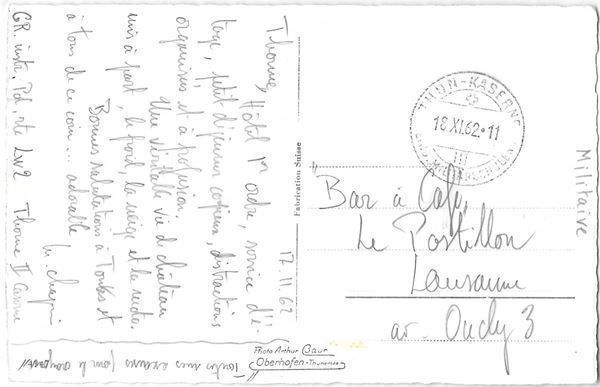 Thoune, 17.11.62
Hôtel 1er ordre, service d'é-
tage, petit déjeuner copieux, distractions
organisées et à profusion.
Une véritable vie d château
mis à part, le froid, la neige et le reste.
Bonnes salutations à Toutes et
à tous de ce coin... adorable
GR. instr. Pd, rte LW2 Thoune II Caserne
Toutes mes excuses pour le crayon!!!
Fabrication Suisse
Photo Arthur Gaur
Oberhofen-Thunersee
THUN-KASERNE
18 XI.62-11
Militaire
Bar à Café,
Le Postillon
Lausanne
av. Ouchy 3